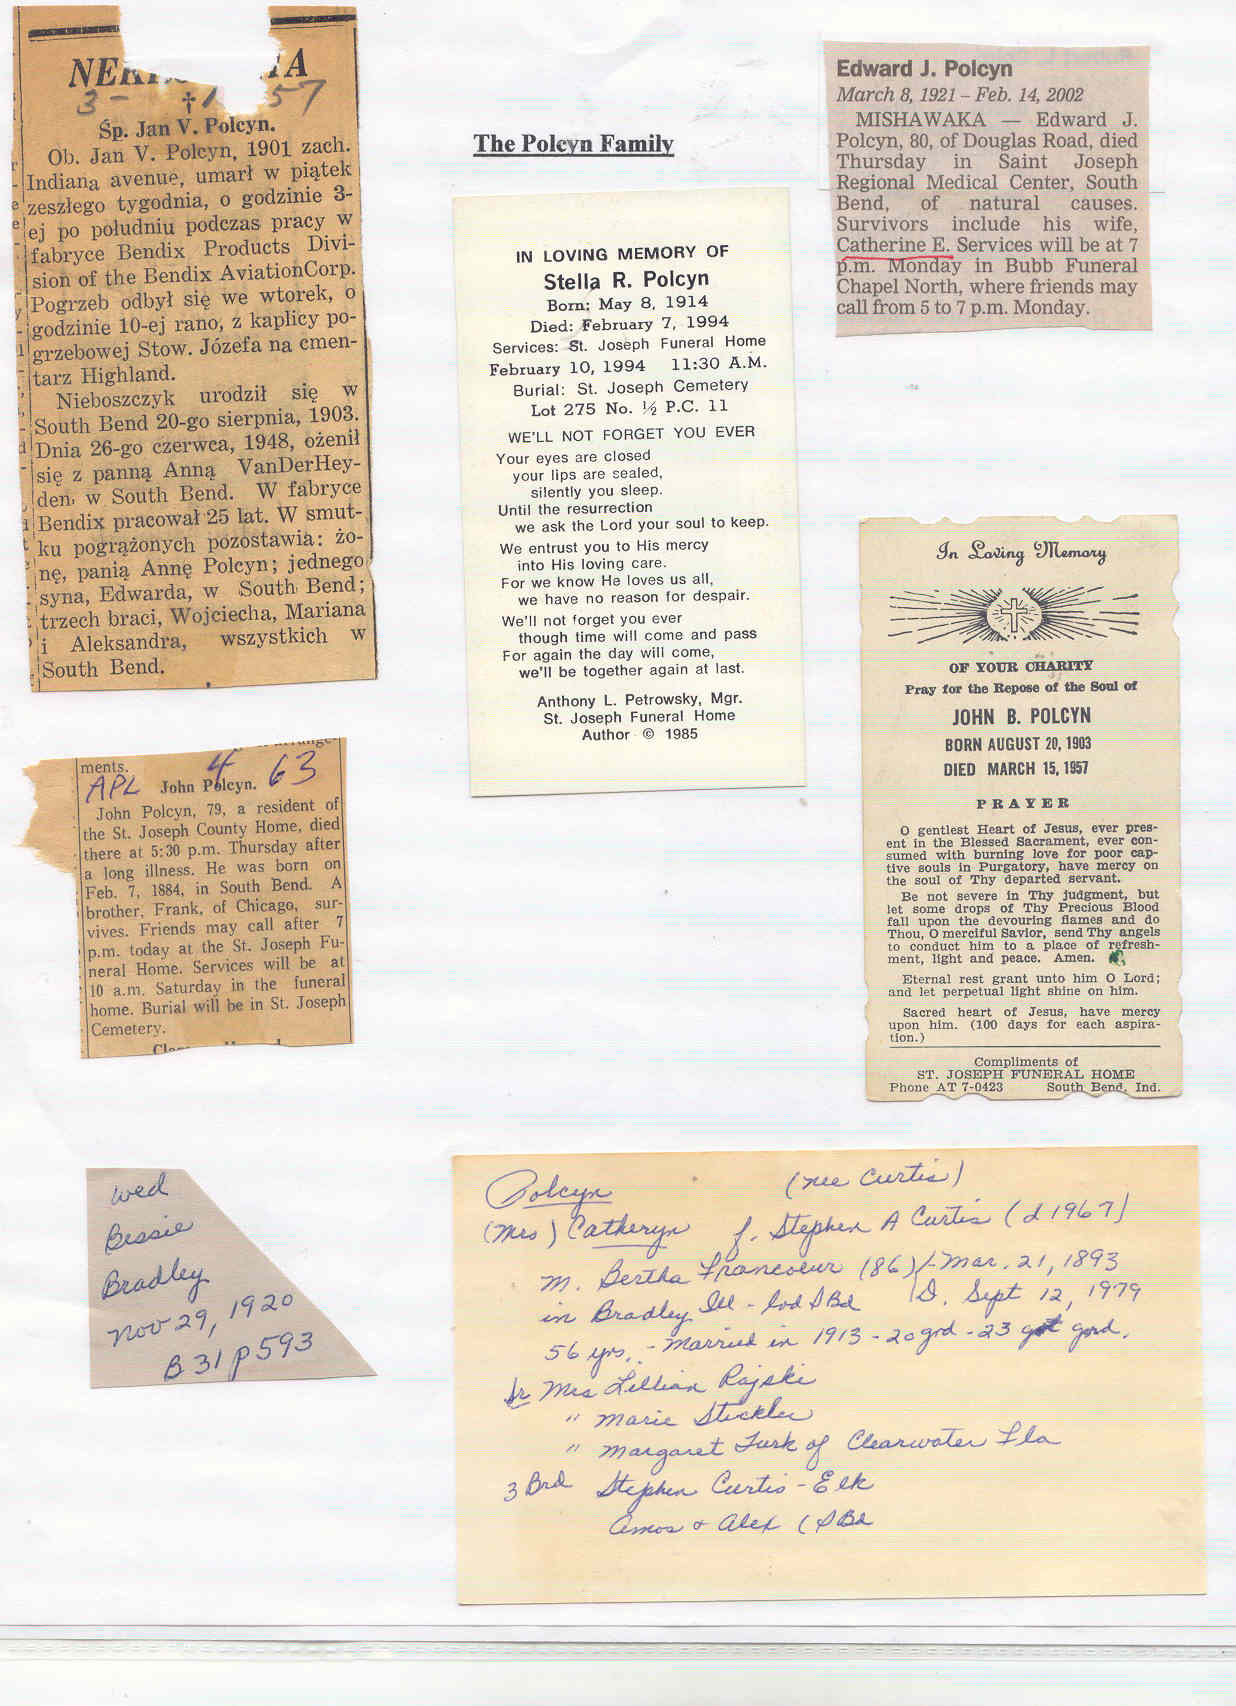 The Polcyn Family
3- 1 57
†
Śp. Jan V. Polcyn.
Ob. Jan V. Polcyn, 1901 zach.
Indiana avenue, umarł w piątek
zeszłego tygodnia, o godzinie 3-
ej po południu podczas pracy w
fabryce Bendix Products Divi-
sion of the Bendix AviationCorp.
Pogrzeb odbył się we wtorek, o
godzinie 10-ej rano, z kaplicy po-
grzebowej Stow. Józefa na cmen-
tarz Highland.
Nieboszczyk urodził się w
South Bend 20-go sierpnia, 1903.
Dnia 26-go czerwca, 1948, ożenił
się z panną Anną VanDerHey-
den w South Bend. W fabryce
Bendix pracował 25 lat. W smut-
ku pogrążonych pozostawia: żo-
nę, panią Annę Polcyn; jednego
syna, Edwarda, w South Bend;
trzech braci, Wojciecha, Mariana
i Aleksandra, wszystkich w
South Bend.
IN LOVING MEMORY OF
Stella R. Polcyn
Born: May 8, 1914
Died: February 7, 1994
Services: St. Joseph Funeral Home
February 10, 1994 11:30 A.M.
Burial: St. Joseph Cemetery
Lot 275 No. ½ P.C. 11
WE'LL NOT FORGET YOU EVER
Your eyes are closed
your lips are sealed,
silently you sleep.
Until the resurrection
we ask the Lord your soul to keep.
We entrust you to His mercy
into His loving care.
For we know He loves us all,
we have no reason for despair.
We'll not forget you ever
though time will come and pass
For again the day will come,
we'll be together again at last.
Anthony L. Petrowsky, Mgr.
St. Joseph Funeral Home
Author © 1985
Edward J. Polcyn
March 8, 1921 – Feb. 14, 2002
MISHAWAKA — Edward J.
Polcyn, 80, of Douglas Road, died
Thursday in Saint Joseph
Regional Medical Center, South
Bend, of natural causes.
Survivors include his wife,
Catherine E. Services will be at 7
p.m. Monday in Bubb Funeral
Chapel North, where friends may
call from 5 to 7 p.m. Monday.
In Loving Memory
OF YOUR CHARITY
Pray for the Repose of the Soul of
JOHN B. POLCYN
BORN AUGUST 20, 1903
DIED MARCH 15, 1957
PRAYER
O gentlest Heart of Jesus, ever pres-
ent in the Blessed Sacrament, ever con-
sumed with burning love for poor cap-
tive souls in Purgatory, have mercy on
the soul of Thy departed servant.
Be not severe in Thy judgment, but
let some drops of Thy Precious Blood
fall upon the devouring flames and do
Thou, O merciful Savior, send Thy angels
to conduct him to a place of refresh-
ment, light and peace. Amen.
Eternal rest grant unto him O Lord;
and let perpetual light shine on him.
Sacred heart of Jesus, have mercy
upon him. (100 days for each aspira-
tion.)
Compliments of
ST. JOSEPH FUNERAL HOME
Phone AT 7-0423 South Bend, Ind.
ments.
APL 4 63
John Polcyn.
John Polcyn, 79, a resident of
the St. Joseph County Home, died
there at 5:30 p.m. Thursday after
a long illness. He was born on
Feb. 7, 1884, in South Bend. A
brother, Frank, of Chicago, sur-
vives. Friends may call after 7
p.m. today at the St. Joseph Fu-
neral Home. Services will be at
10 a.m. Saturday in the funeral
home. Burial will be in St. Joseph
Cemetery.
wed
Bessie
Bradley
Nov 29, 1920
B 31 p 593
Polcyn (nee Curtis)
(Mrs) Catheryn f. Stephen A Curtis (d 1967)
m. Bertha Francoeur (86) - Mar. 21, 1893
in Bradley Ill - lvd S Bd D. Sept 12, 1979
56 yrs. - Married in 1913 - 20 grd - 23 gt grd.
Sr Mrs Lillian Rajski
" Marie Steckler
" Margaret Turk of Clearwater Fla
3 Brd Stephen Curtis - Elk
Amos + Alex (S Bd